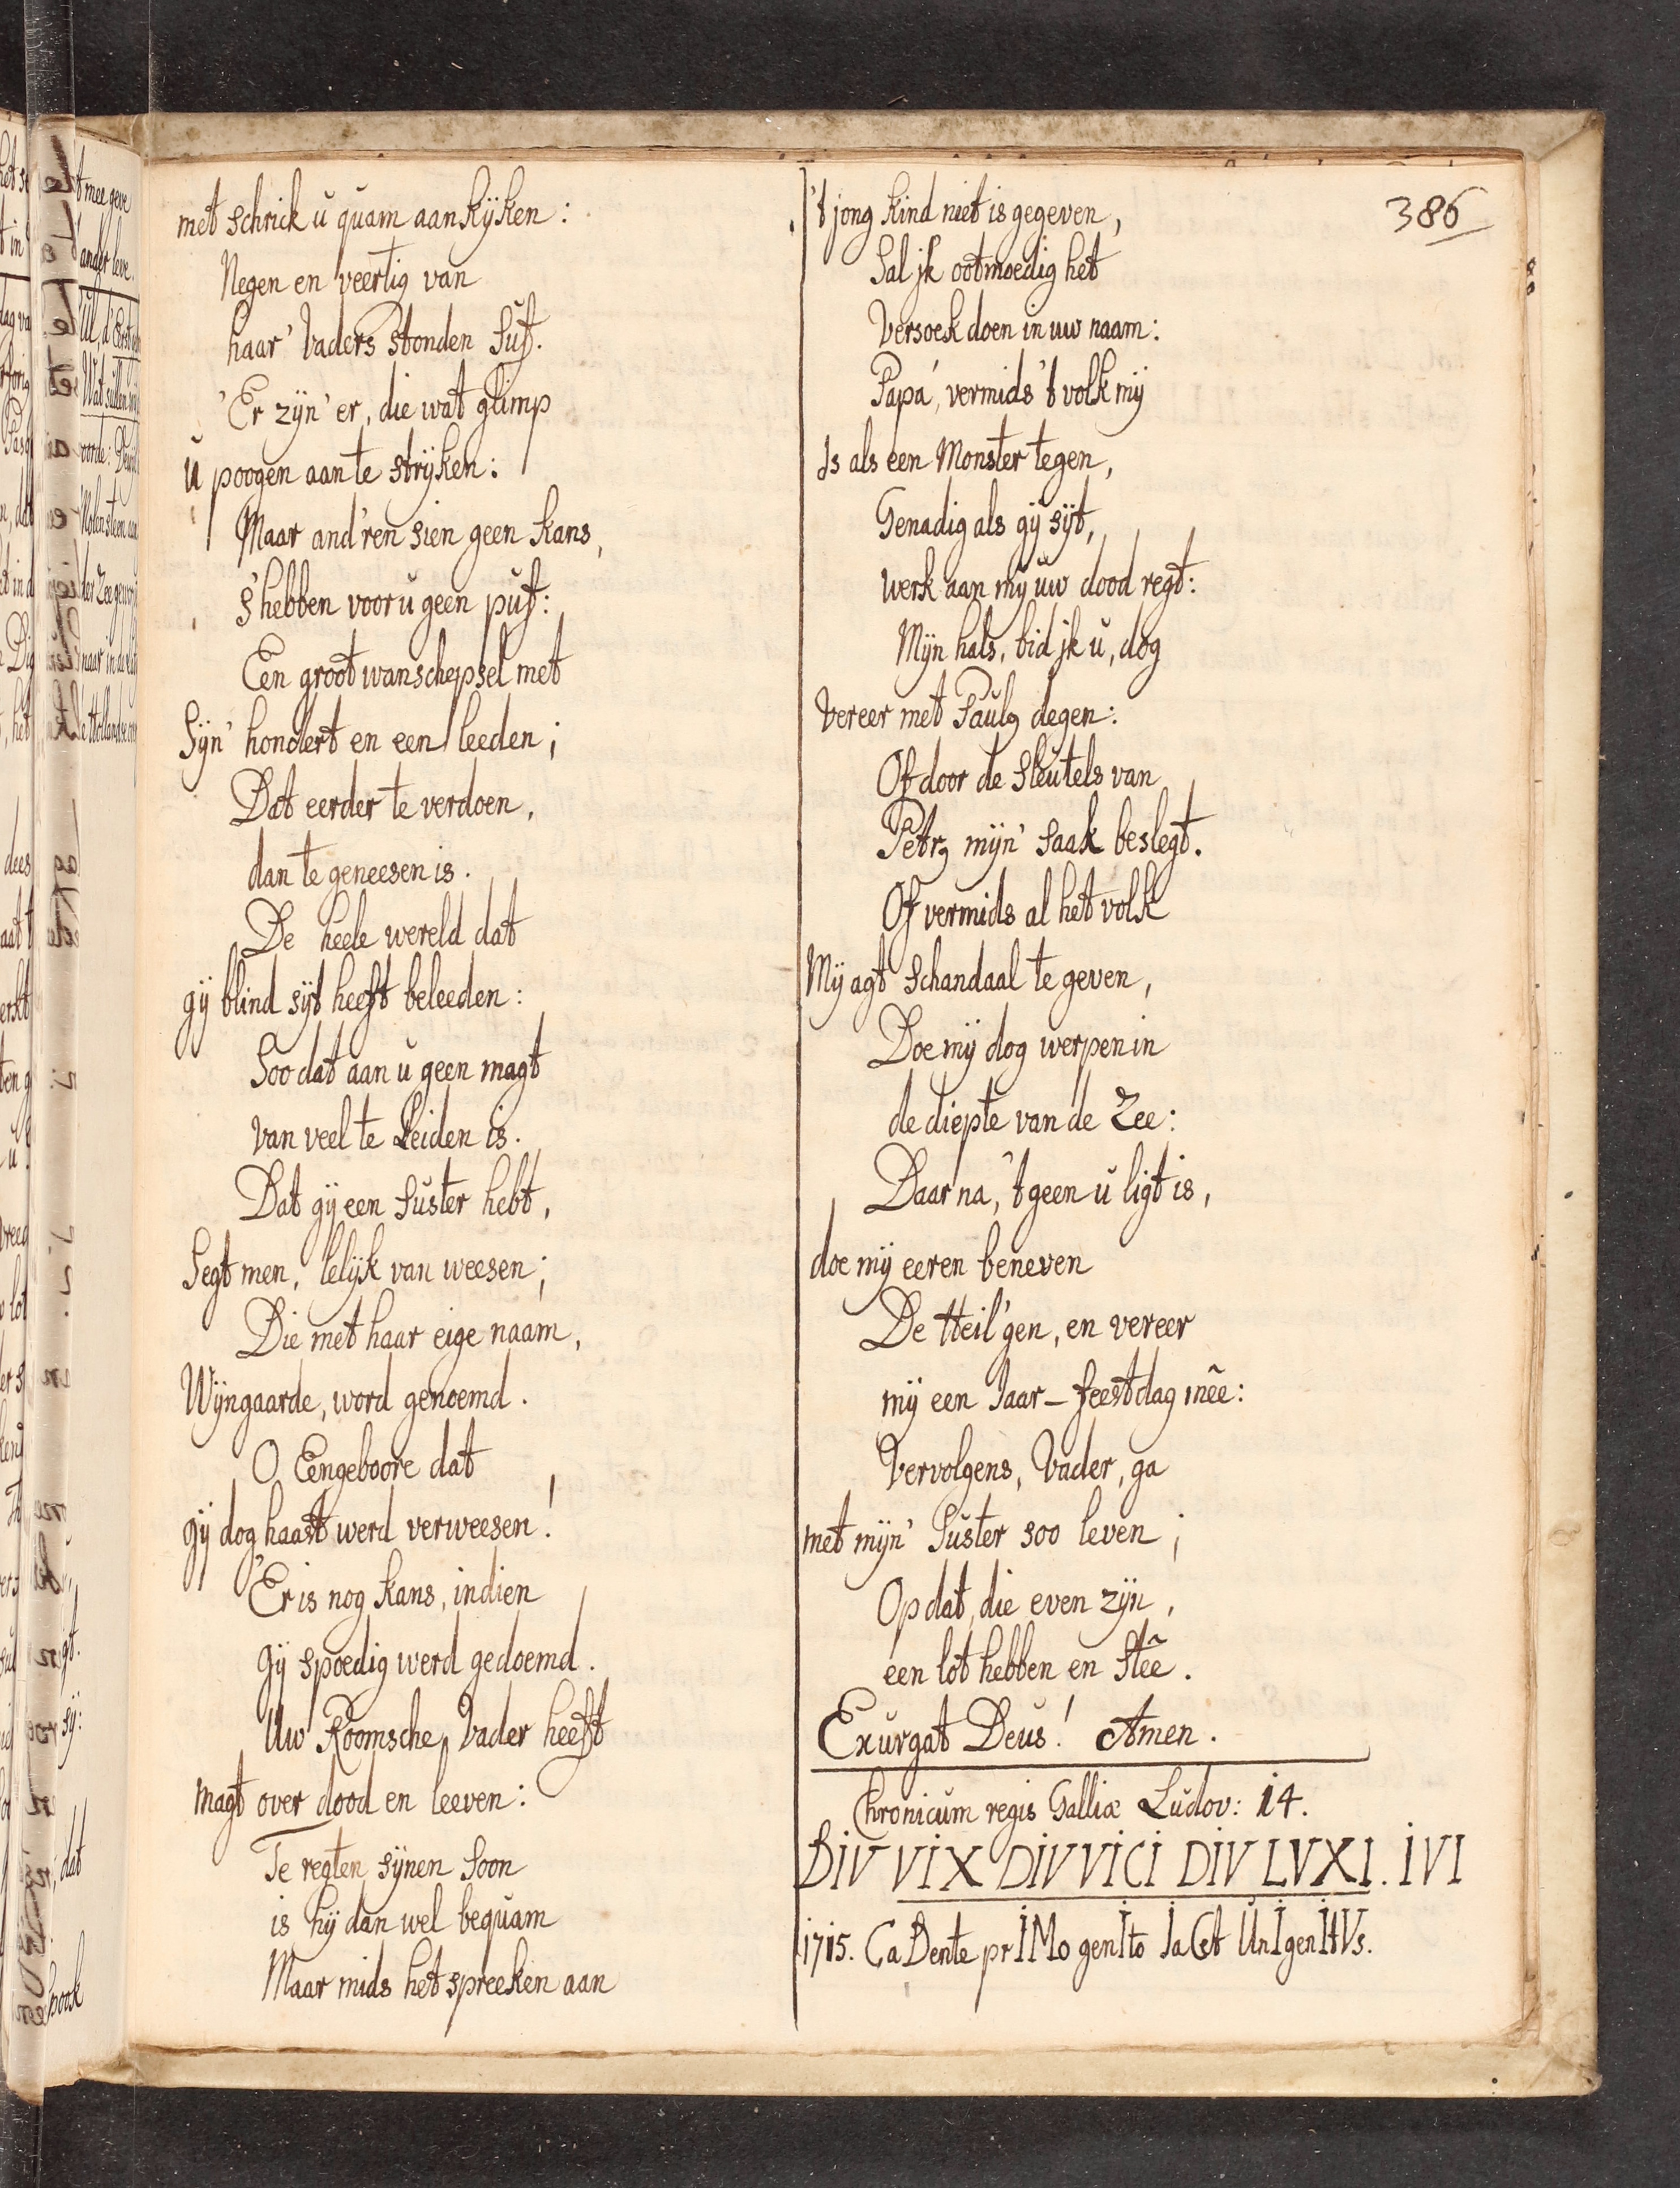 met schrick u quam aankyken:
Negen en veertig van
haar' Vaders stonden suf.
'Er zyn'er, die wat glimp
u poogen aan te stryken:
Maar and'ren sien geen kans,
S'hebben voor u geen puf:
Een groot wanschepsel met
Syn' hondert en een leeden;
Dat eerder te verdoen,
dan te geneesen is.
De heele wereld dat
gy blind syt heeft beleeden:
Soo dat aan u geen magt
van veel te Leiden is.
Dat gy een Suster hebt,
Segt men, lelyk van weesen;
Die met haar eige naam,
Wyngaarde, word genoemd.
O Eengeboore dat
gy dog haast werd verweesen!
'Er is nog kans, indien
gy spoedig werd gedoemd.
Uw' Roomsche Vader heeft
magt over dood en leeven:
Te regten synen Soon
is hy dan wel bequam
Maar mids het spreeken aan
't jong kind niet is gegeven,
Sal jk ootmoedig het
Versoek doen in uw naam:
Papa, vermids 't volk my
Is als een Monster tegen,
Genadig als gy syt,
werk aan my uw dood regt:
Myn hals, bid jk u, dog
Vereer met Paulȝ degen:
Of door de Sleutels van
Petrȝ myn' saak beslegt.
Of vermids al het volk
My agt Schandaal te geven,
Doe my dog werpen in
de diepte van de Zee:
Daar na, 't geen u ligt is,
doe my eeren beneven
De Heil'gen, en vereer
my een Jaar-feestdag mẽe:
Vervolgens, Vader, ga
met myn' Suster soo leven;
Op dat, die even zyn,
een lot hebben en Stẽe.
Exurgat Deus! Amen.
Chronicum regis Galliæ Ludov: 14.
DIV VIX DIV VICI DIV LVXI. IVI
1715. CaDente prIMo genIto IaCet UnIgenItVs.
386